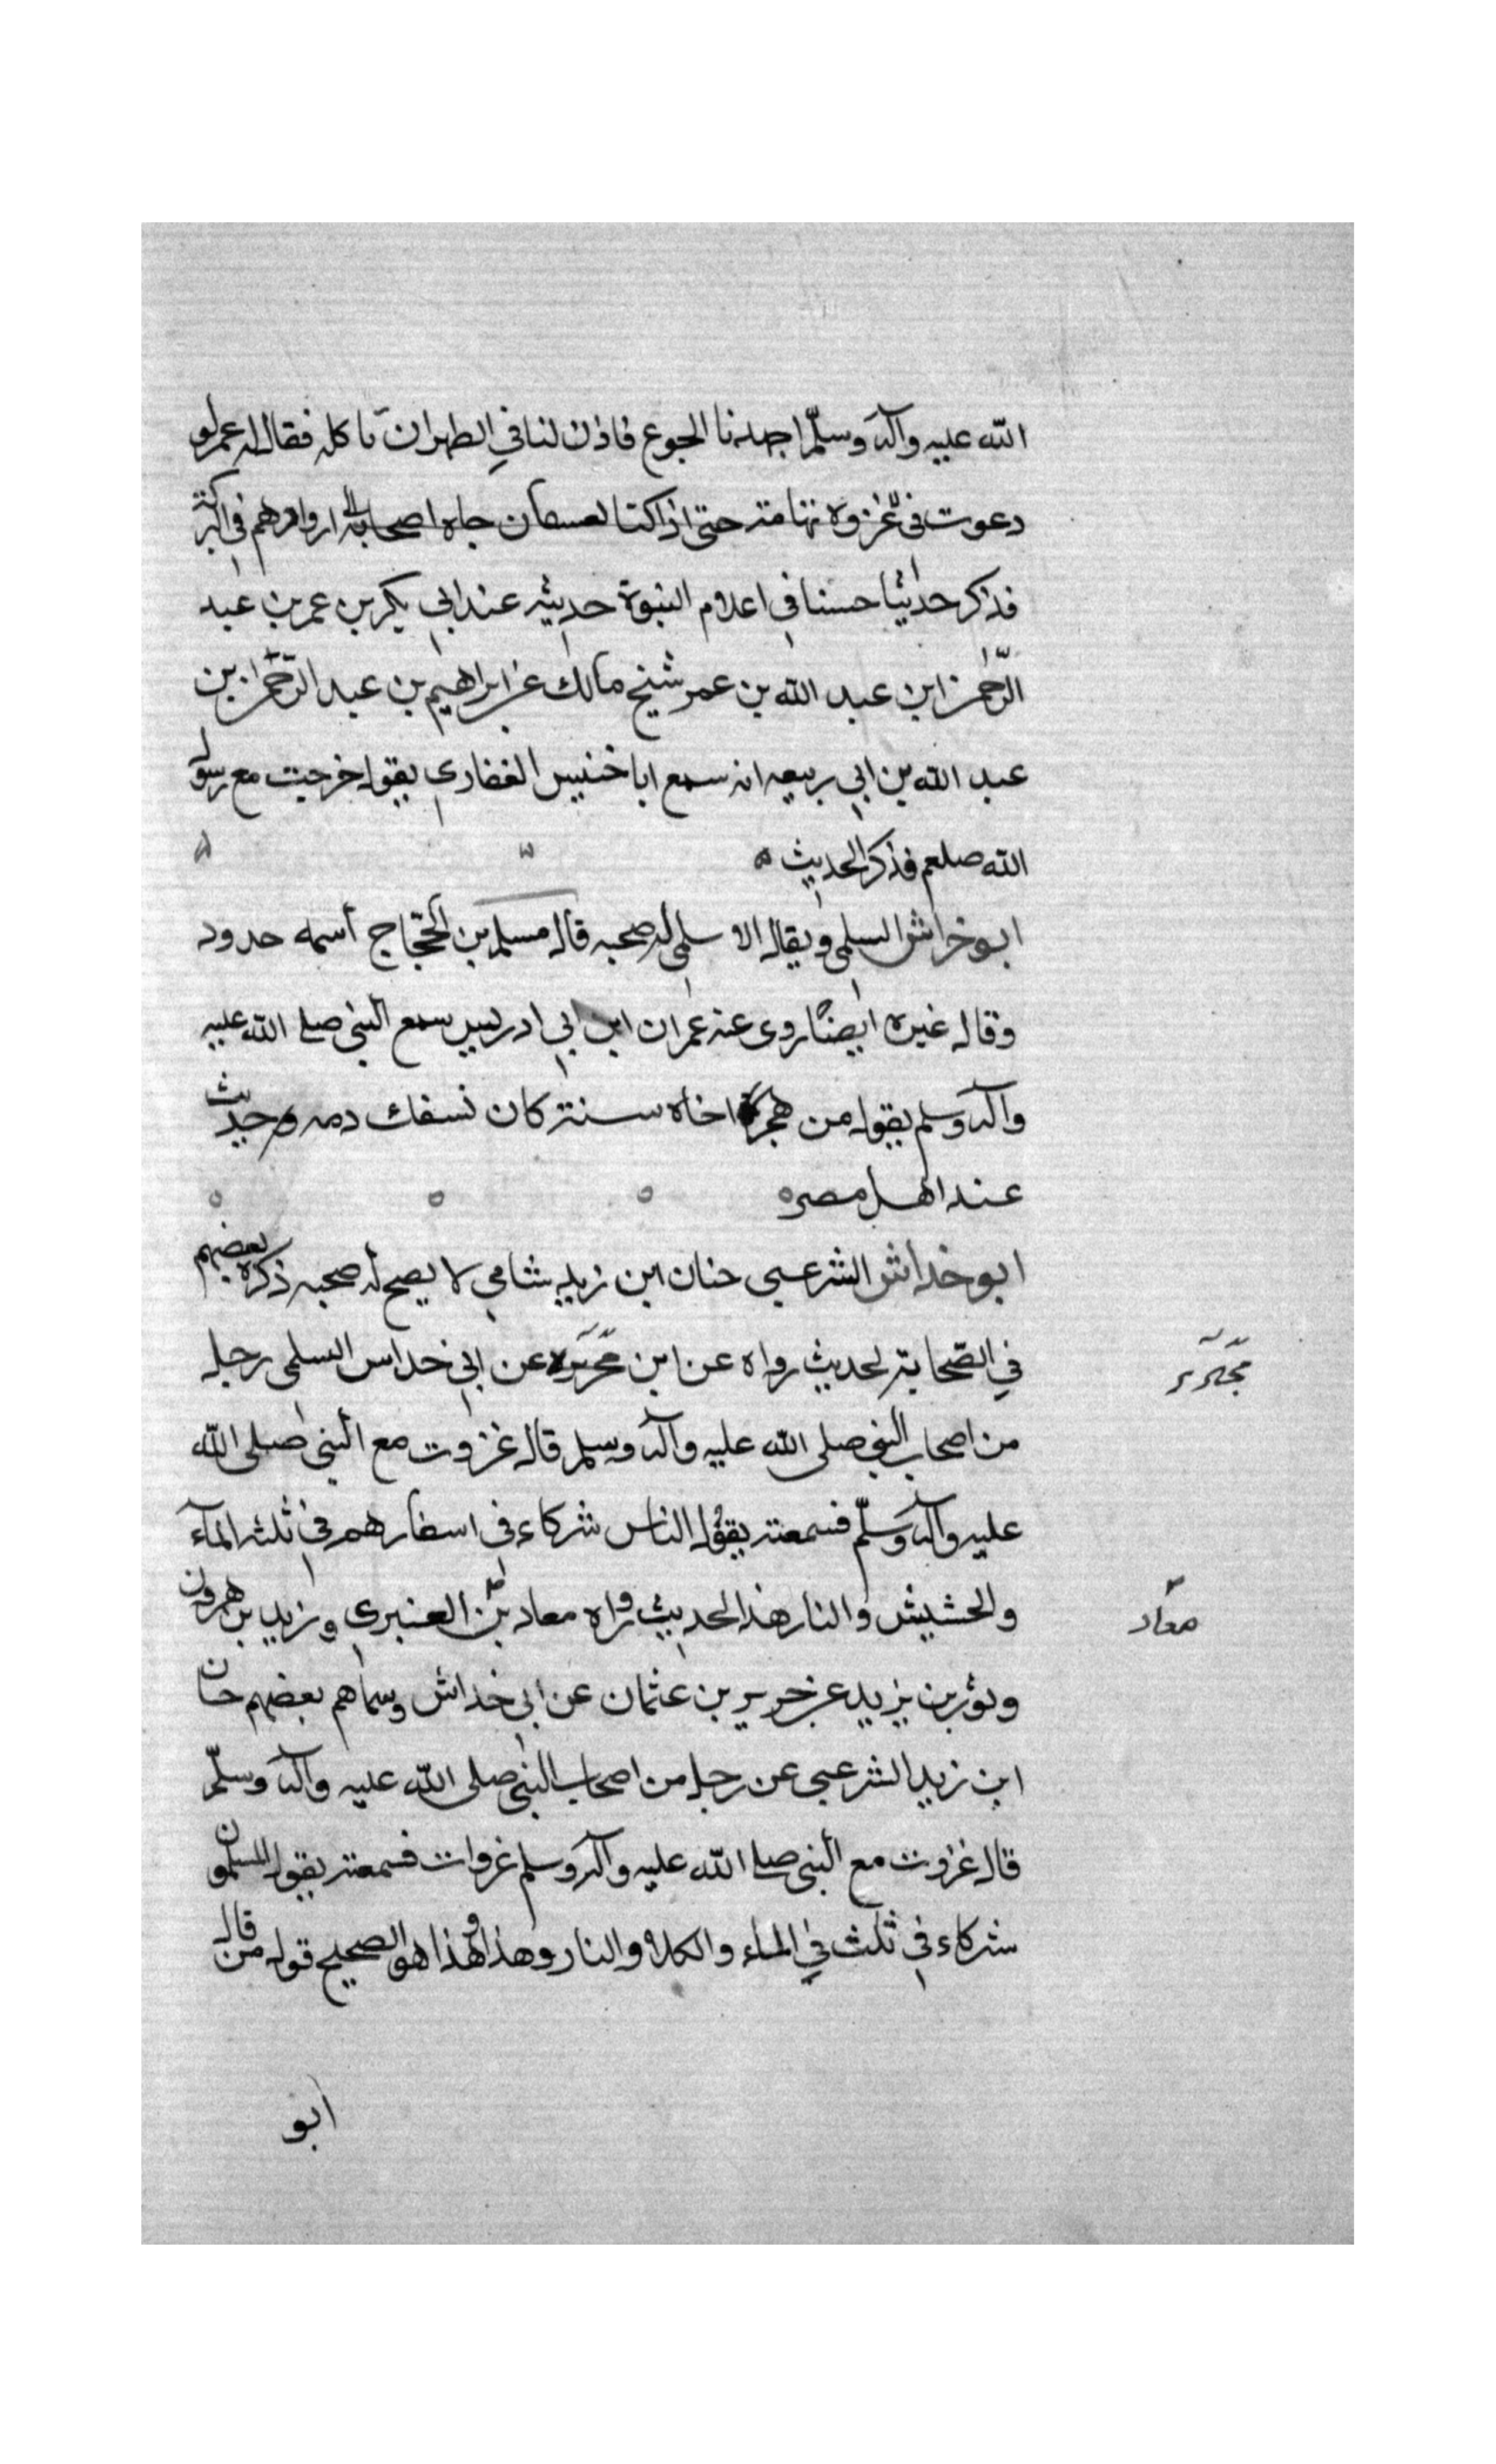 الله عليه وآله وسلّم اجهدنا الجوع فاذن لنا في الظهران ناكله فقال له عمر لو
دعوت في غزوة تهامة حتى اذا كنا بعسفان جاه اصحابه ازوادهم في البركة
فذكر حديثا حسنا في اعلام النبوة حديثه عند ابي بكر بن عمر بن عبد
الرّحمن ابن عبد الله بن عمر شيخ مالك عن ابراهيم بن عبد الرّحمن بن
عبد الله بن ابي ربيعه انه سمع ابا خنيس الغفاري يقول خرجت مع رسول
الله صلعم فذكر الحديث ه
ابو خراش السلمي ويقال الاسلمي له صحبه قال مسلم بن الحجّاج أسمه حدود
وقال غيره ايضًا روى عنه عمران ابن ابي ادريس سمع النبي صلى الله عليه
وآله وسلم يقول من هجر اخاه سنة كان نسفك دمه وحديث
عند اهل مصر ه
ابو خداش الشرعبي حنان ابن زيد شامي لا يصح له صحبه ذكره بعضهم
في الصّحابة لحديث رواه عن ابن محريره عن ابي خداس السلمى رجل
محرير
من اصحاب النبي صلى الله عليه وآله وسلم قال غزوت مع النبي صلى الله
عليه وآله وسلّم فسمعته يقول الناس شركاء في اسفارهم في ثلثه المآء
والحشيش والنار هذا الحديث رواه معاد بن العنبري و زيد بن هرون
معاد
وثور بن يزيد عن حرير بن عثمان عن ابي خداش وسماهم بعضهم حان
ابن زيد الشرعبي عن رجل من اصحاب النبي صلى الله عليه وآله وسلّم
قال غزوت مع النبي صلى الله عليه وآله وسلم غزوات فسمعته يقول المسلمون
شركاء في ثلث في الماء والكلاء والنار وهذا وهذا هو الصحيح قول من قال
ابو